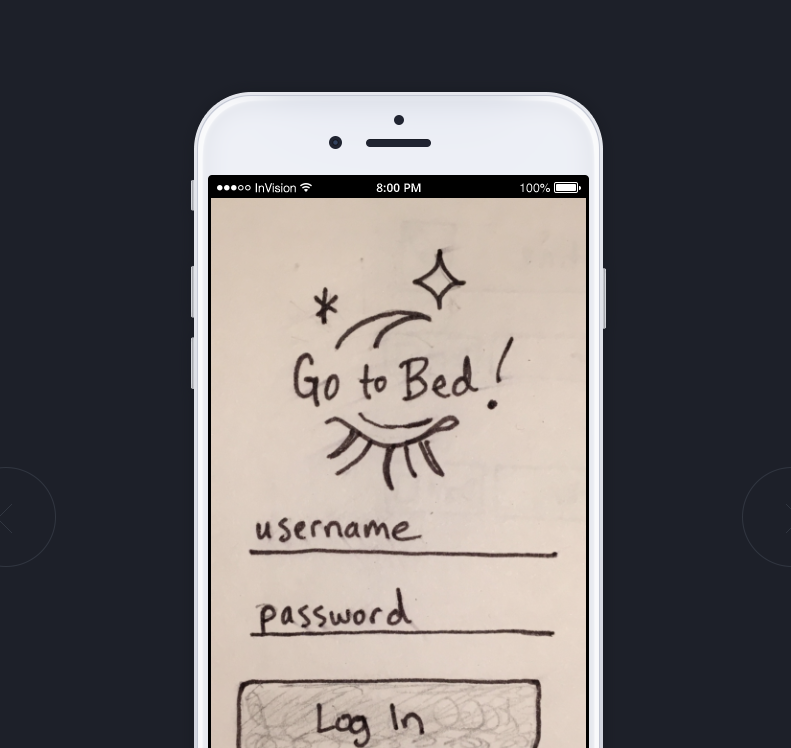 InVision 8:00 PM 100%
Go to Bed!
username
password
Log In